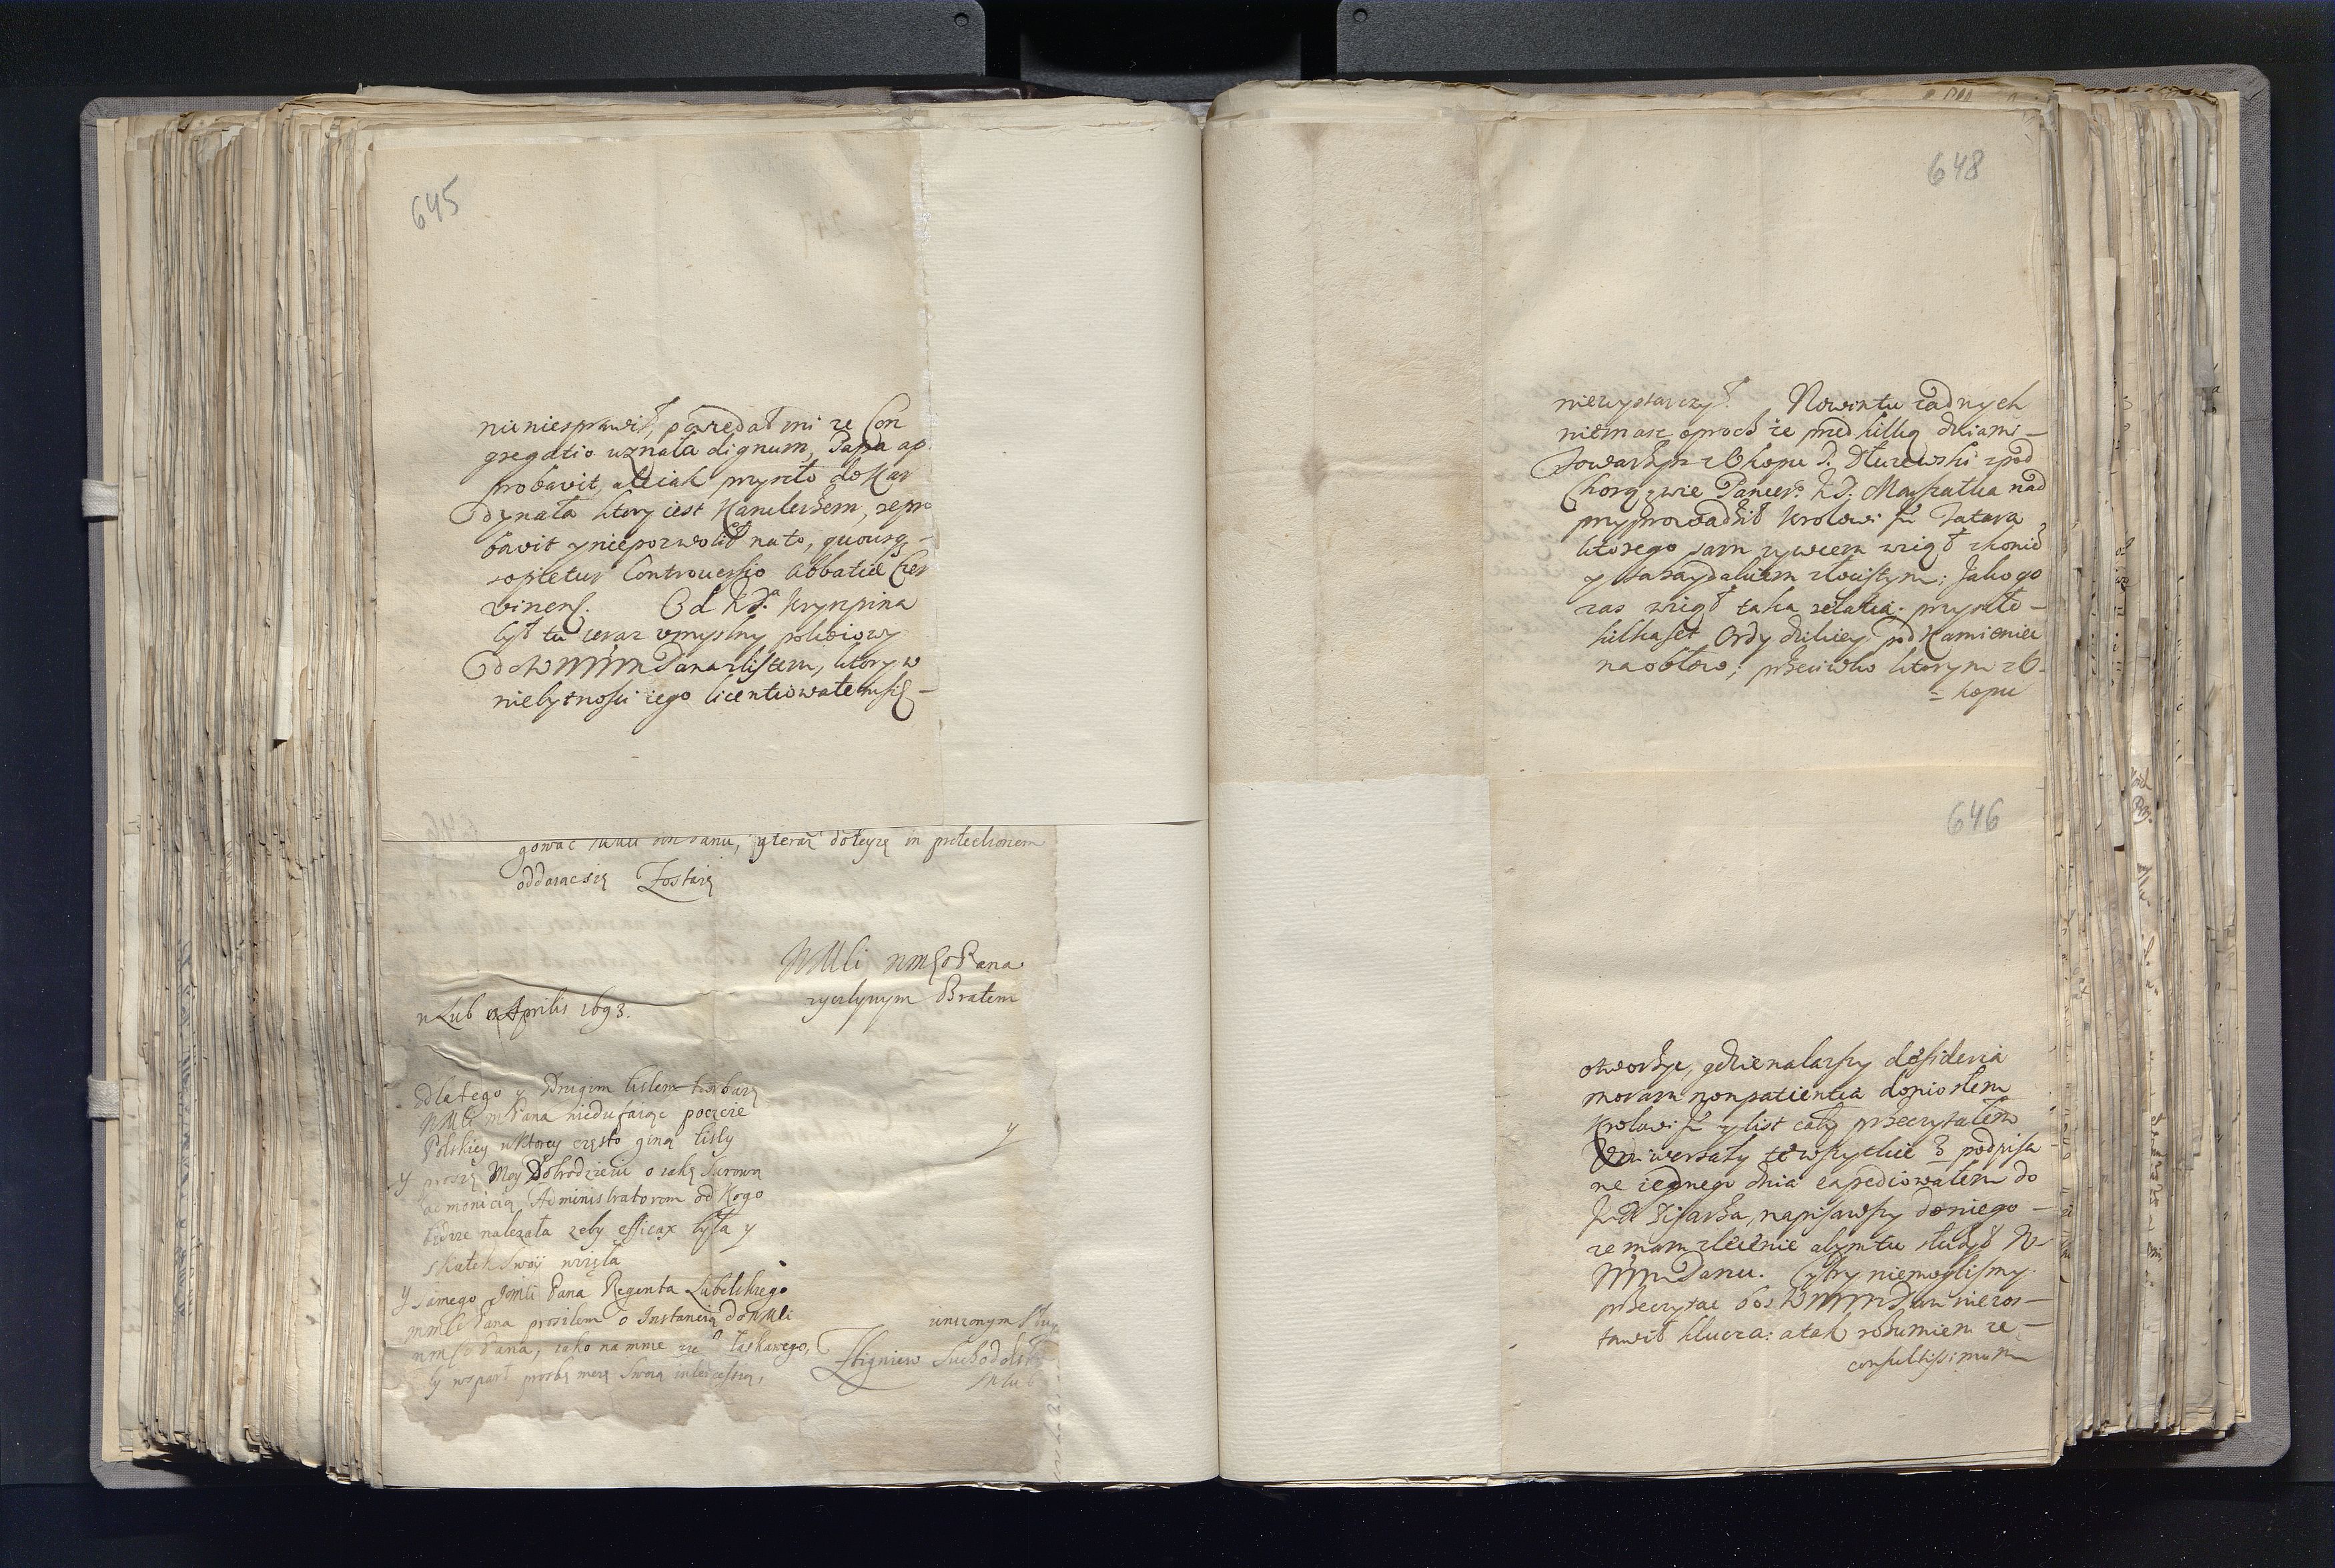 645
nic niesprawił, powiedał mi ze Con
gregatio uznała dignum, Papa ap
probavit, ale iak przyszło do Kar
dynała ktory iest Kanclerzem, repro
bavit y niepozwolił na to, quousq
sopietur Controversio Abbatiæ Czer
vinens. Od KP. Kryszpina
był tu teraz umyslny
Pana z listem, ktory w
niebytnosci iego licentiowałem się
gowac Panu, y teraz in protectionem
oddaiąc się Zostaię
WMci nmsc Pana
zyczliwym Bratem
w Lub Aprilis 1693.
dlatego y drugim listem turbuię
WMci m Pana nieduffaiąc poczcie
Polskiey w ktorey często giną listy
y
y proszę Moy Dobrodzieiu o iaką surową
admonicią Administratorom od kogo
bidzie nalezała zeby efficax była y
skutek swoy wzięła
y samego Jmci Pana Regenta Lubelskiego
mmsc Pana prosiłem o Instancią do WMci
nmsc Pana, iako na mnie łaskawego,
y wsparł prosbę moię swoią intercessią,
unizonym sługą
Zbigniew Suchodolski
648
niewystarczył. Nowin tu zadnych
niemasz oproch ze przed kilką dniami
Towarzysz z Okopu P. Dłuzewski z pod
Chorągwie Pancer: KP. Marszałka nad
przyprowadził Krolowi Jm Tatara
ktorego sam zywcem wziął z koniem
y z sahaydakiem złocistym; Jako go
zas wziął taka relatia. przyszło
kilkaset Ordy dzikiey pod Kamieniec
na obłow, przeciwko ktorym z O-
= kopu
646
otworzyc, gdzie nalazszy desideria
moram non patientia doniosłem
Krolowi Jm y list cały przeczytałem
Uniwersały te wszytkie 3 podpisa
ne iednego dnia expediowałem do
JmP. Pisarza, napisawszy do niego
ze mam zlecenie abym tu słuzył W
Panu. Cyfry niemoglismy
przeczytac bos Pan niezos-
tawił klucza: a tak rozumiem ze
consultissimum